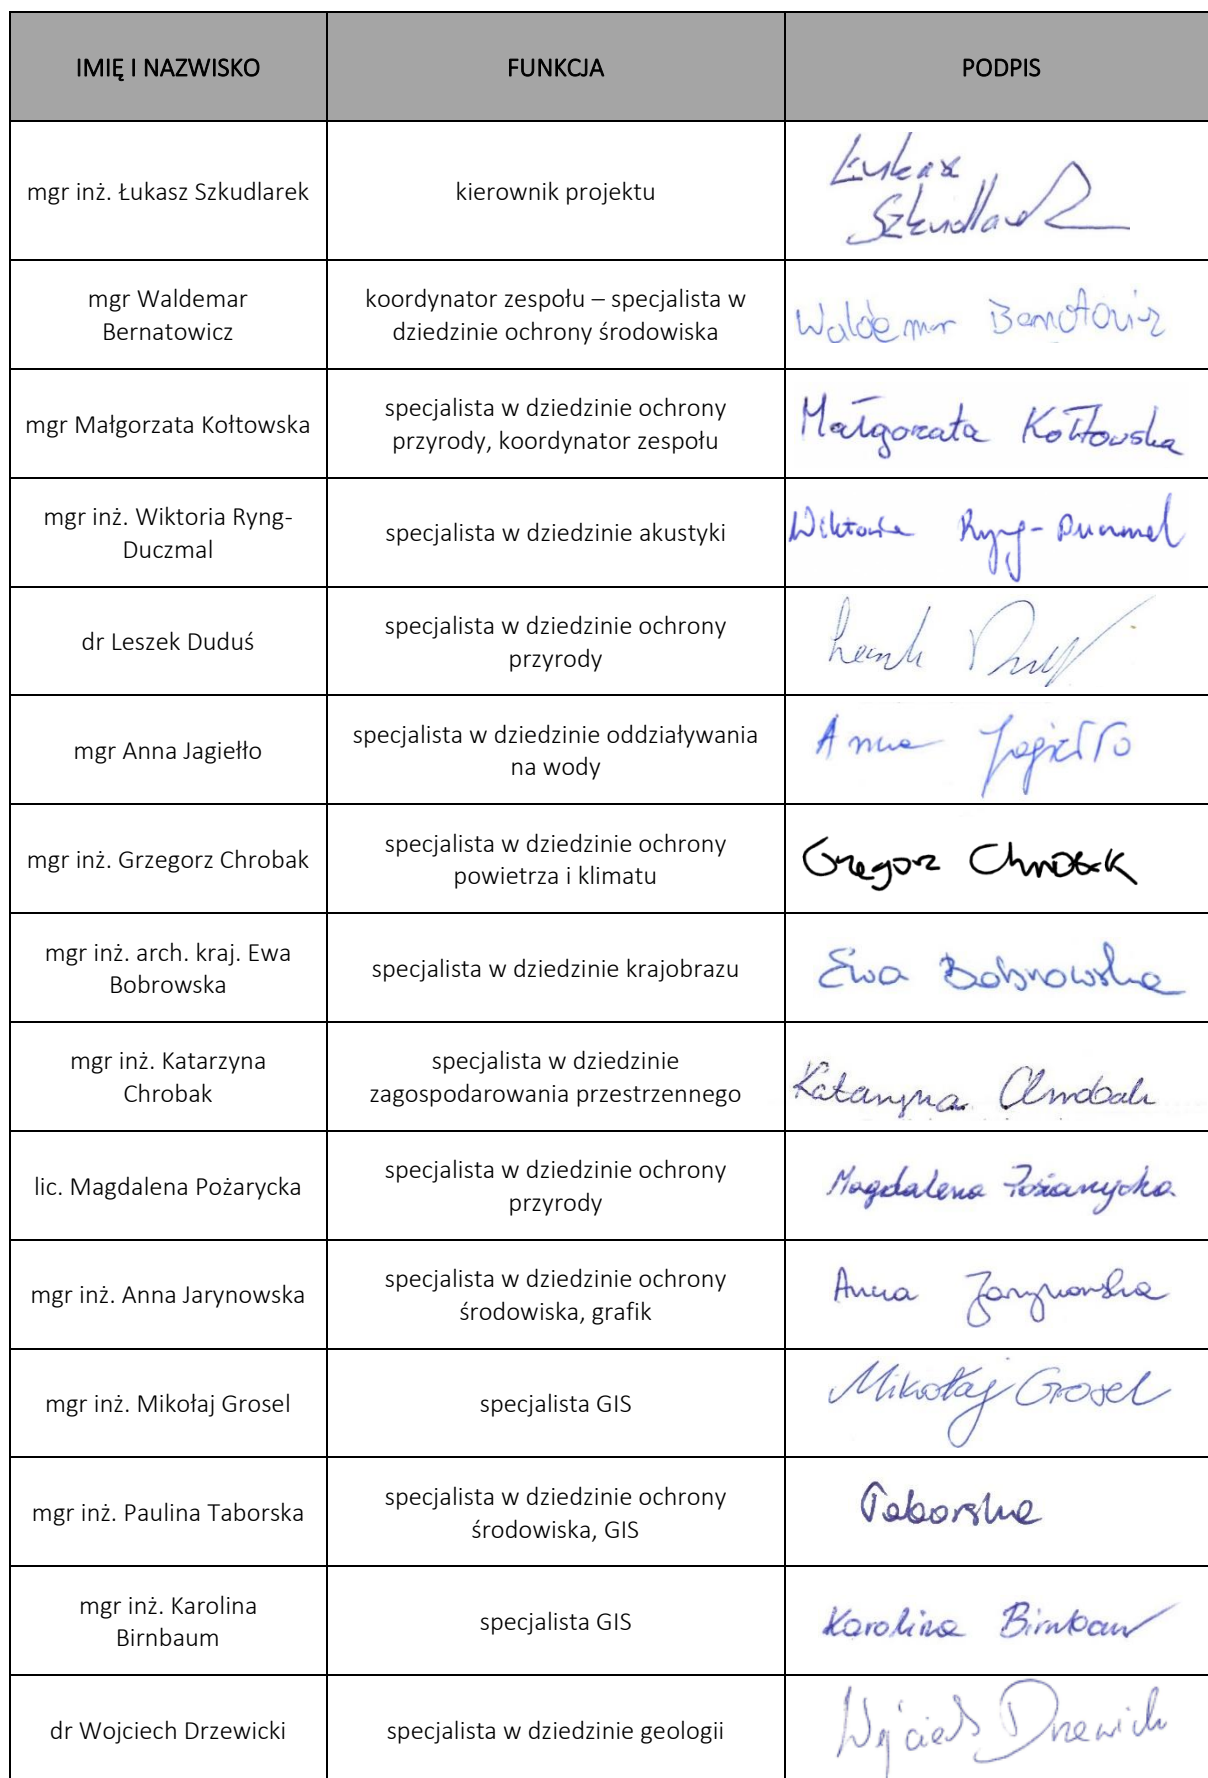 IMIĘ I NAZWISKO FUNKCJA PODPIS
mgr inż. Łukasz Szkudlarek kierownik projektu Łukasz
Szkudlarek
mgr Waldemar koordynator zespołu – specjalista w
Bernatowicz dziedzinie ochrony środowiska Waldemar Bernatowicz
mgr Małgorzata Kołtowska specjalista w dziedzinie ochrony
przyrody, koordynator zespołu Małgorzata Kołtowska
mgr inż. Wiktoria Ryng-
Duczmal specjalista w dziedzinie akustyki Wiktoria Ryng-Duczmal
dr Leszek Duduś specjalista w dziedzinie ochrony
przyrody
mgr Anna Jagiełło specjalista w dziedzinie oddziaływania
na wody Anna Jagiełło
mgr inż. Grzegorz Chrobak specjalista w dziedzinie ochrony
powietrza i klimatu Grzegorz Chrobak
mgr inż. arch. kraj. Ewa
Bobrowska specjalista w dziedzinie krajobrazu Ewa Bobrowska
mgr inż. Katarzyna specjalista w dziedzinie
Chrobak zagospodarowania przestrzennego Katarzyna Chrobak
lic. Magdalena Pożarycka specjalista w dziedzinie ochrony
przyrody Magdalena Pożarycka
mgr inż. Anna Jarynowska specjalista w dziedzinie ochrony
środowiska, grafik Anna Jarynowska
mgr inż. Mikołaj Grosel specjalista GIS Mikołaj Grosel
mgr inż. Paulina Taborska specjalista w dziedzinie ochrony
środowiska, GIS Taborska
mgr inż. Karolina
Birnbaum specjalista GIS Karolina Birnbaum
dr Wojciech Drzewicki specjalista w dziedzinie geologii Wojciech Drzewicki